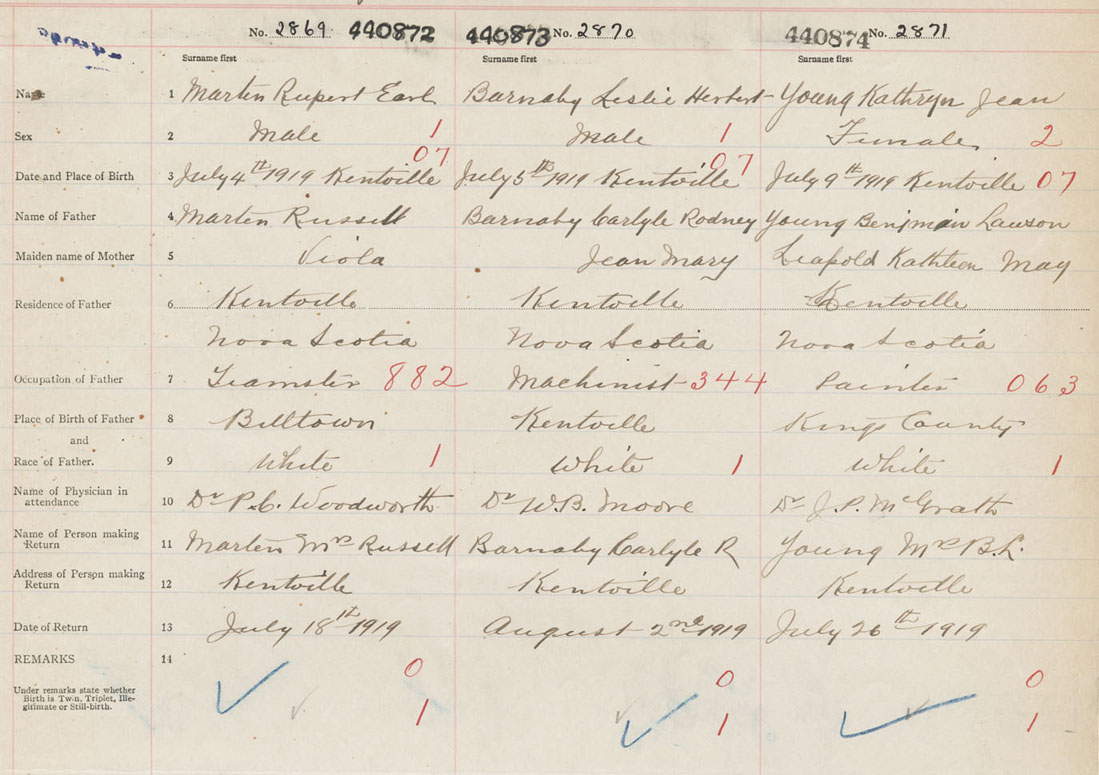 No. 2869 440872 440873 No. 2870 440874 No. 2871
Surname first Surname first Surname first
Name 1 Martin Rupert Earl Barnaby Leslie Herbert Young Kathryn Jean
Sex 2 Male 1 Male 1 Female 2
07 07
Date and Place of Birth 3 July 4th 1919 Kentville July 5th 1919 Kentville July 9th 1919 Kentville 07
Name of Father 4 Martin Russell Barnaby Carlyle Rodney Young Benjmin Lawson
Maiden name of Mother 5 Viola Jean Mary Leapold Kathleen May
Residence of Father 6 Kentville Kentville Kentville
Nova Scotia Nova Scotia Nova Scotia
Occupation of Father 7 Teamster 882 Machinist 344 Painter 063
Place of Birth of Father 8 Billtown Kentville Kings County
and
Race of Father. 9 White 1 White 1 White 1
Name of Physician in
attendance 10 Dr P.C. Woodworth Dr W.B. Moore Dr J.P. McGrath
Name of Person making
Return 11 Martin Mrs Russell Barnaby Carlyle R Young Mrs B.L.
Address of Person making
Return 12 Kentville Kentville Kentville
Date of Return 13 July 18th 1919 August 2nd 1919 July 26th 1919
REMARKS 14
0 0 0
Under remarks state whether
Birth is Twin, Triplet, Ille-
gitimate or Still-birth.
1 1 1